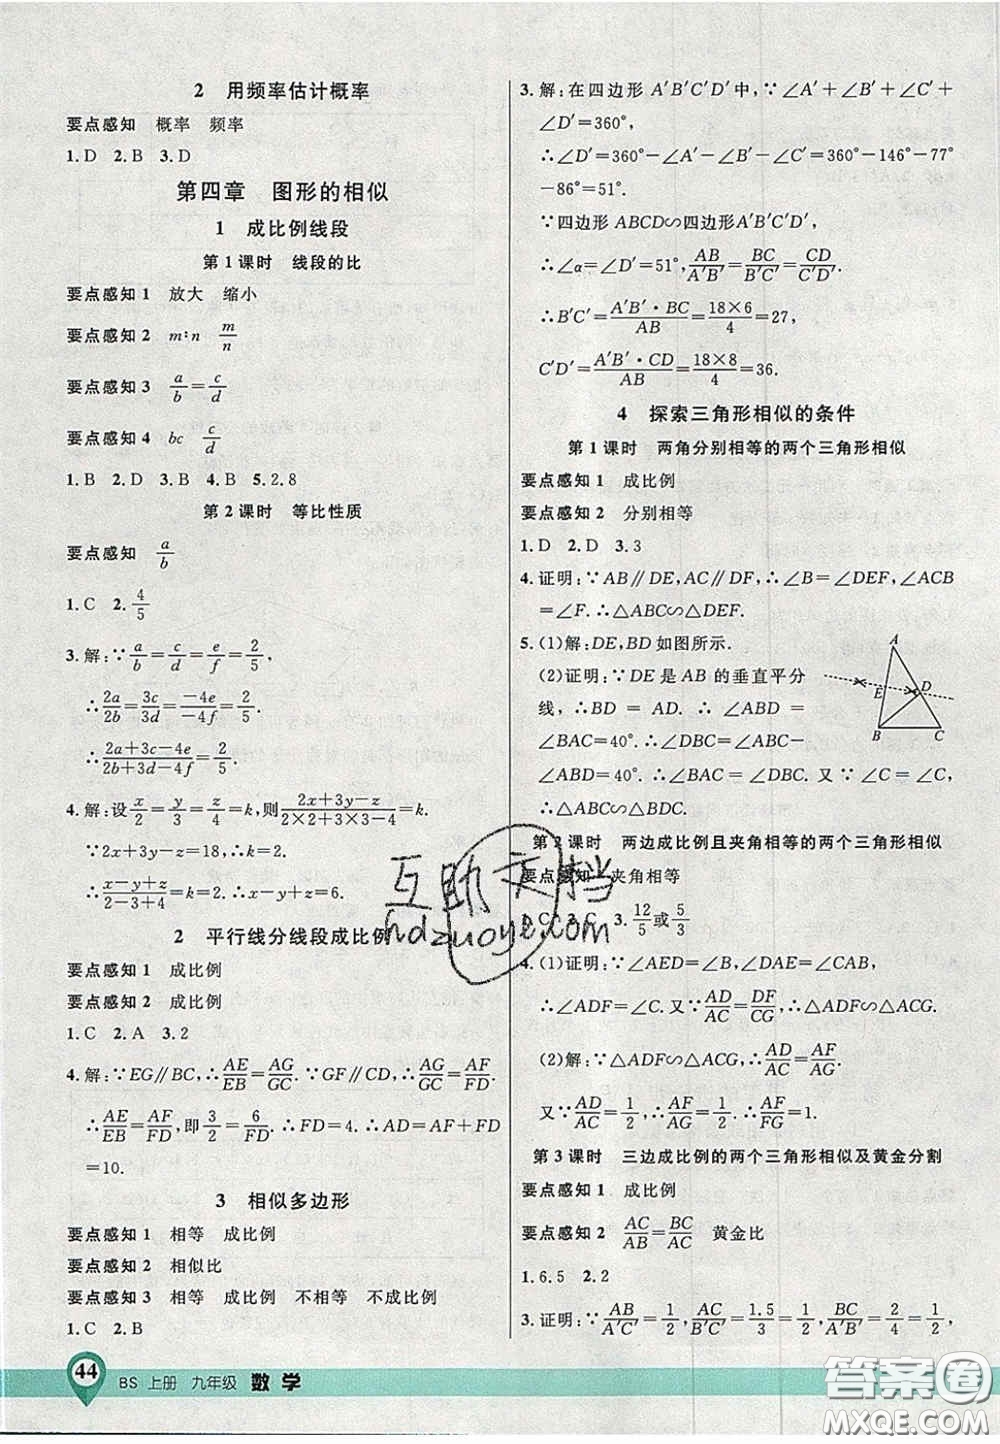 2 用频率估计概率
要点感知 概率 频率
1.D 2.B 3.D
第四章 图形的相似
1 成比例线段
第1课时 线段的比
要点感知1 放大 缩小
要点感知2 m∶n m/n
要点感知3 a/b=c/d
要点感知4 bc c/d
1.B 2.D 3.B 4.B 5.2.8
第2课时 等比性质
要点感知 a/b
1.C 2.4/5
3.解:∵a/b=c/d=e/f=2/5,
∴2a/2b=3c/3d=-4e/-4f=2/5.
∴(2a+3c-4e)/(2b+3d-4f)=2/5.
4.解:设x/2=y/3=z/4=k,则(2x+3y-z)/(2×2+3×3-4)=k.
∵2x+3y-z=18,∴k=2.
∴(x-y+z)/(2-3+4)=k=2.∴x-y+z=6.
2 平行线分线段成比例
要点感知1 成比例
要点感知2 成比例
1.C 2.A 3.2
4.解:∵EG∥BC,∴AE/EB=AG/GC.∵GF∥CD,∴AG/GC=AF/FD.
∴AE/EB=AF/FD,即3/2=6/FD.∴FD=4.∴AD=AF+FD=
10.
3 相似多边形
要点感知1 相等 成比例
要点感知2 相似比
要点感知3 相等 成比例 不相等 不成比例
1.C 2.B
3.解:在四边形A′B′C′D′中,∵∠A′+∠B′+∠C′+
∠D′=360°,
∴∠D′=360°-∠A′-∠B′-∠C′=360°-146°-77°
-86°=51°.
∵四边形ABCD∽四边形A′B′C′D′,
∴∠α=∠D′=51°,AB/A′B′=BC/B′C′=CD/C′D′.
∴B′C′=A′B′·BC/AB=18×6/4=27,
C′D′=A′B′·CD/AB=18×8/4=36.
4 探索三角形相似的条件
第1课时 两角分别相等的两个三角形相似
要点感知1 成比例
要点感知2 分别相等
1.D 2.D 3.3
4.证明:∵AB∥DE,AC∥DF,∴∠B=∠DEF,∠ACB
=∠F.∴△ABC∽△DEF.
5.(1)解:DE,BD如图所示.
(2)证明:∵DE是AB的垂直平分
线,∴BD=AD.∴∠ABD=
∠BAC=40°.∵∠ABC=80°,∴∠DBC=∠ABC-
∠ABD=40°.∴∠BAC=∠DBC.又∵∠C=∠C,
∴△ABC∽△BDC.
A
E
D
B
C
第2课时 两边成比例且夹角相等的两个三角形相似
要点感知 夹角相等
1.C 2.C 3.12/5或5/3
4.(1)证明:∵∠AED=∠B,∠DAE=∠CAB,
∴∠ADF=∠C.又∵AD/AC=DF/CG,∴△ADF∽△ACG.
(2)解:∵△ADF∽△ACG,∴AD/AC=AF/AG.
又∵AD/AC=1/2,∴AF/AG=1/2.∴AF/FG=1.
第3课时 三边成比例的两个三角形相似及黄金分割
要点感知1 成比例
要点感知2 AC/AB=BC/AC 黄金比
1.6.5 2.2
3.证明:∵AB/A′C′=1/2,AC/B′C′=1.5/3=1/2,BC/A′B′=2/4=1/2,
44 BS 上册 九年级 数学
互助文档
hdzuoye.com
答案圈
MXQE.COM